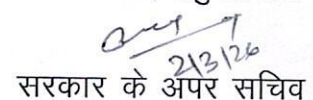 2/3/26
सरकार के अपर सचिव